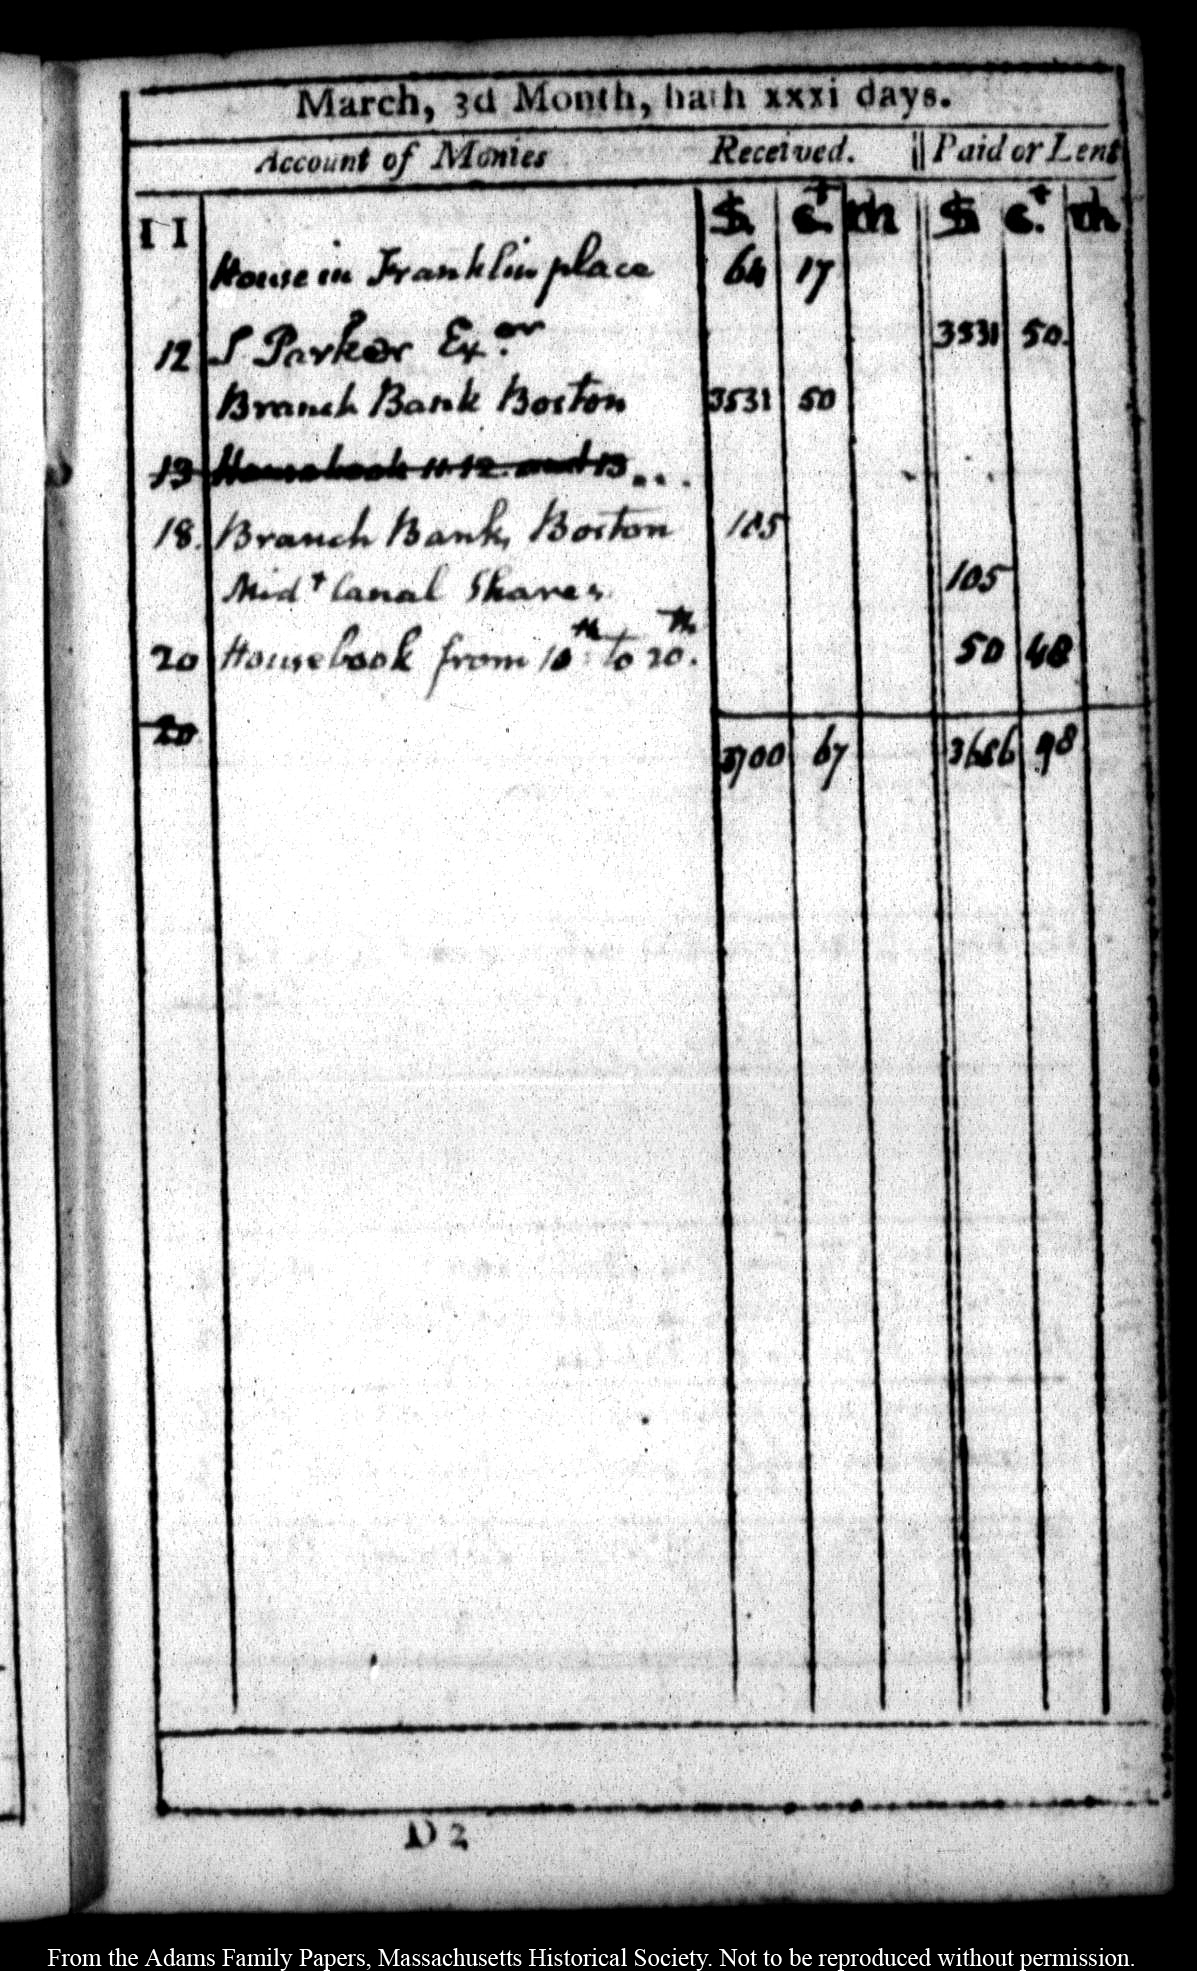 March, 3d Month, hath xxxi days.
Account of Monies Received. Paid or Lent
$ ct m $ ct m
11
House in Franklin place 64 17
12 S Parker Exor 3531 50.
Branch Bank Boston 3531 50
13 Housebook 11 12 and 13...
18. Branch Bank, Boston 105
Midx Canal Shares 105
20 Housebook from 10th to 20th. 50 48
20
3700 67 3686 98
D 2
From the Adams Family Papers, Massachusetts Historical Society. Not to be reproduced without permission.